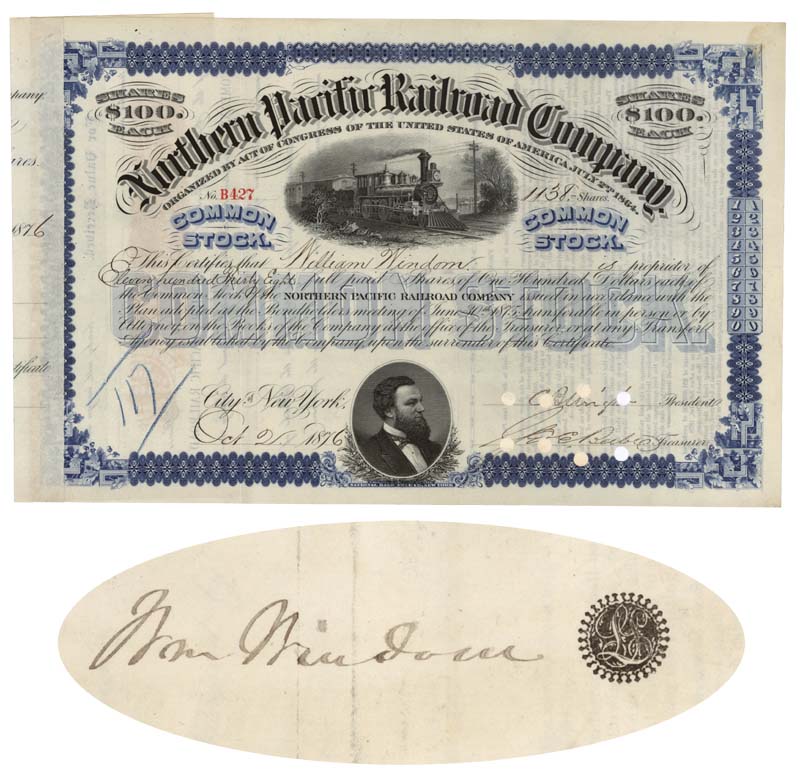 SHARES
$100.
EACH
SHARES
$100.
EACH
Northern Pacific Railroad Company.
ORGANIZED BY ACT OF CONGRESS OF THE UNITED STATES OF AMERICA, JULY 2ND 1864.
No. B427
1138 Shares.
COMMON
STOCK.
COMMON
STOCK.
This Certifies that William Windom is proprietor of
Eleven hundred thirty Eight full paid Shares of One Hundred Dollars each of
the Common Stock of the NORTHERN PACIFIC RAILROAD COMPANY issued in accordance with the
Plan adopted at the Bondholders meeting of June 30th 1875, transferable in person or by
Attorney on the books of the Company at the office of the Treasurer or at any Transfer
Agency established by the Company upon the surrender of this Certificate
COMMON STOCK.
117
City of New York,
President
Oct 1876
Treasurer
NATIONAL BANK NOTE CO. NEW YORK
pany.
res.
1876
tificate
For Value Received
1 1
2 2
3 3
4 4
5 5
6 6
7 7
8 8
9 9
0 0
Wm Windom
LS